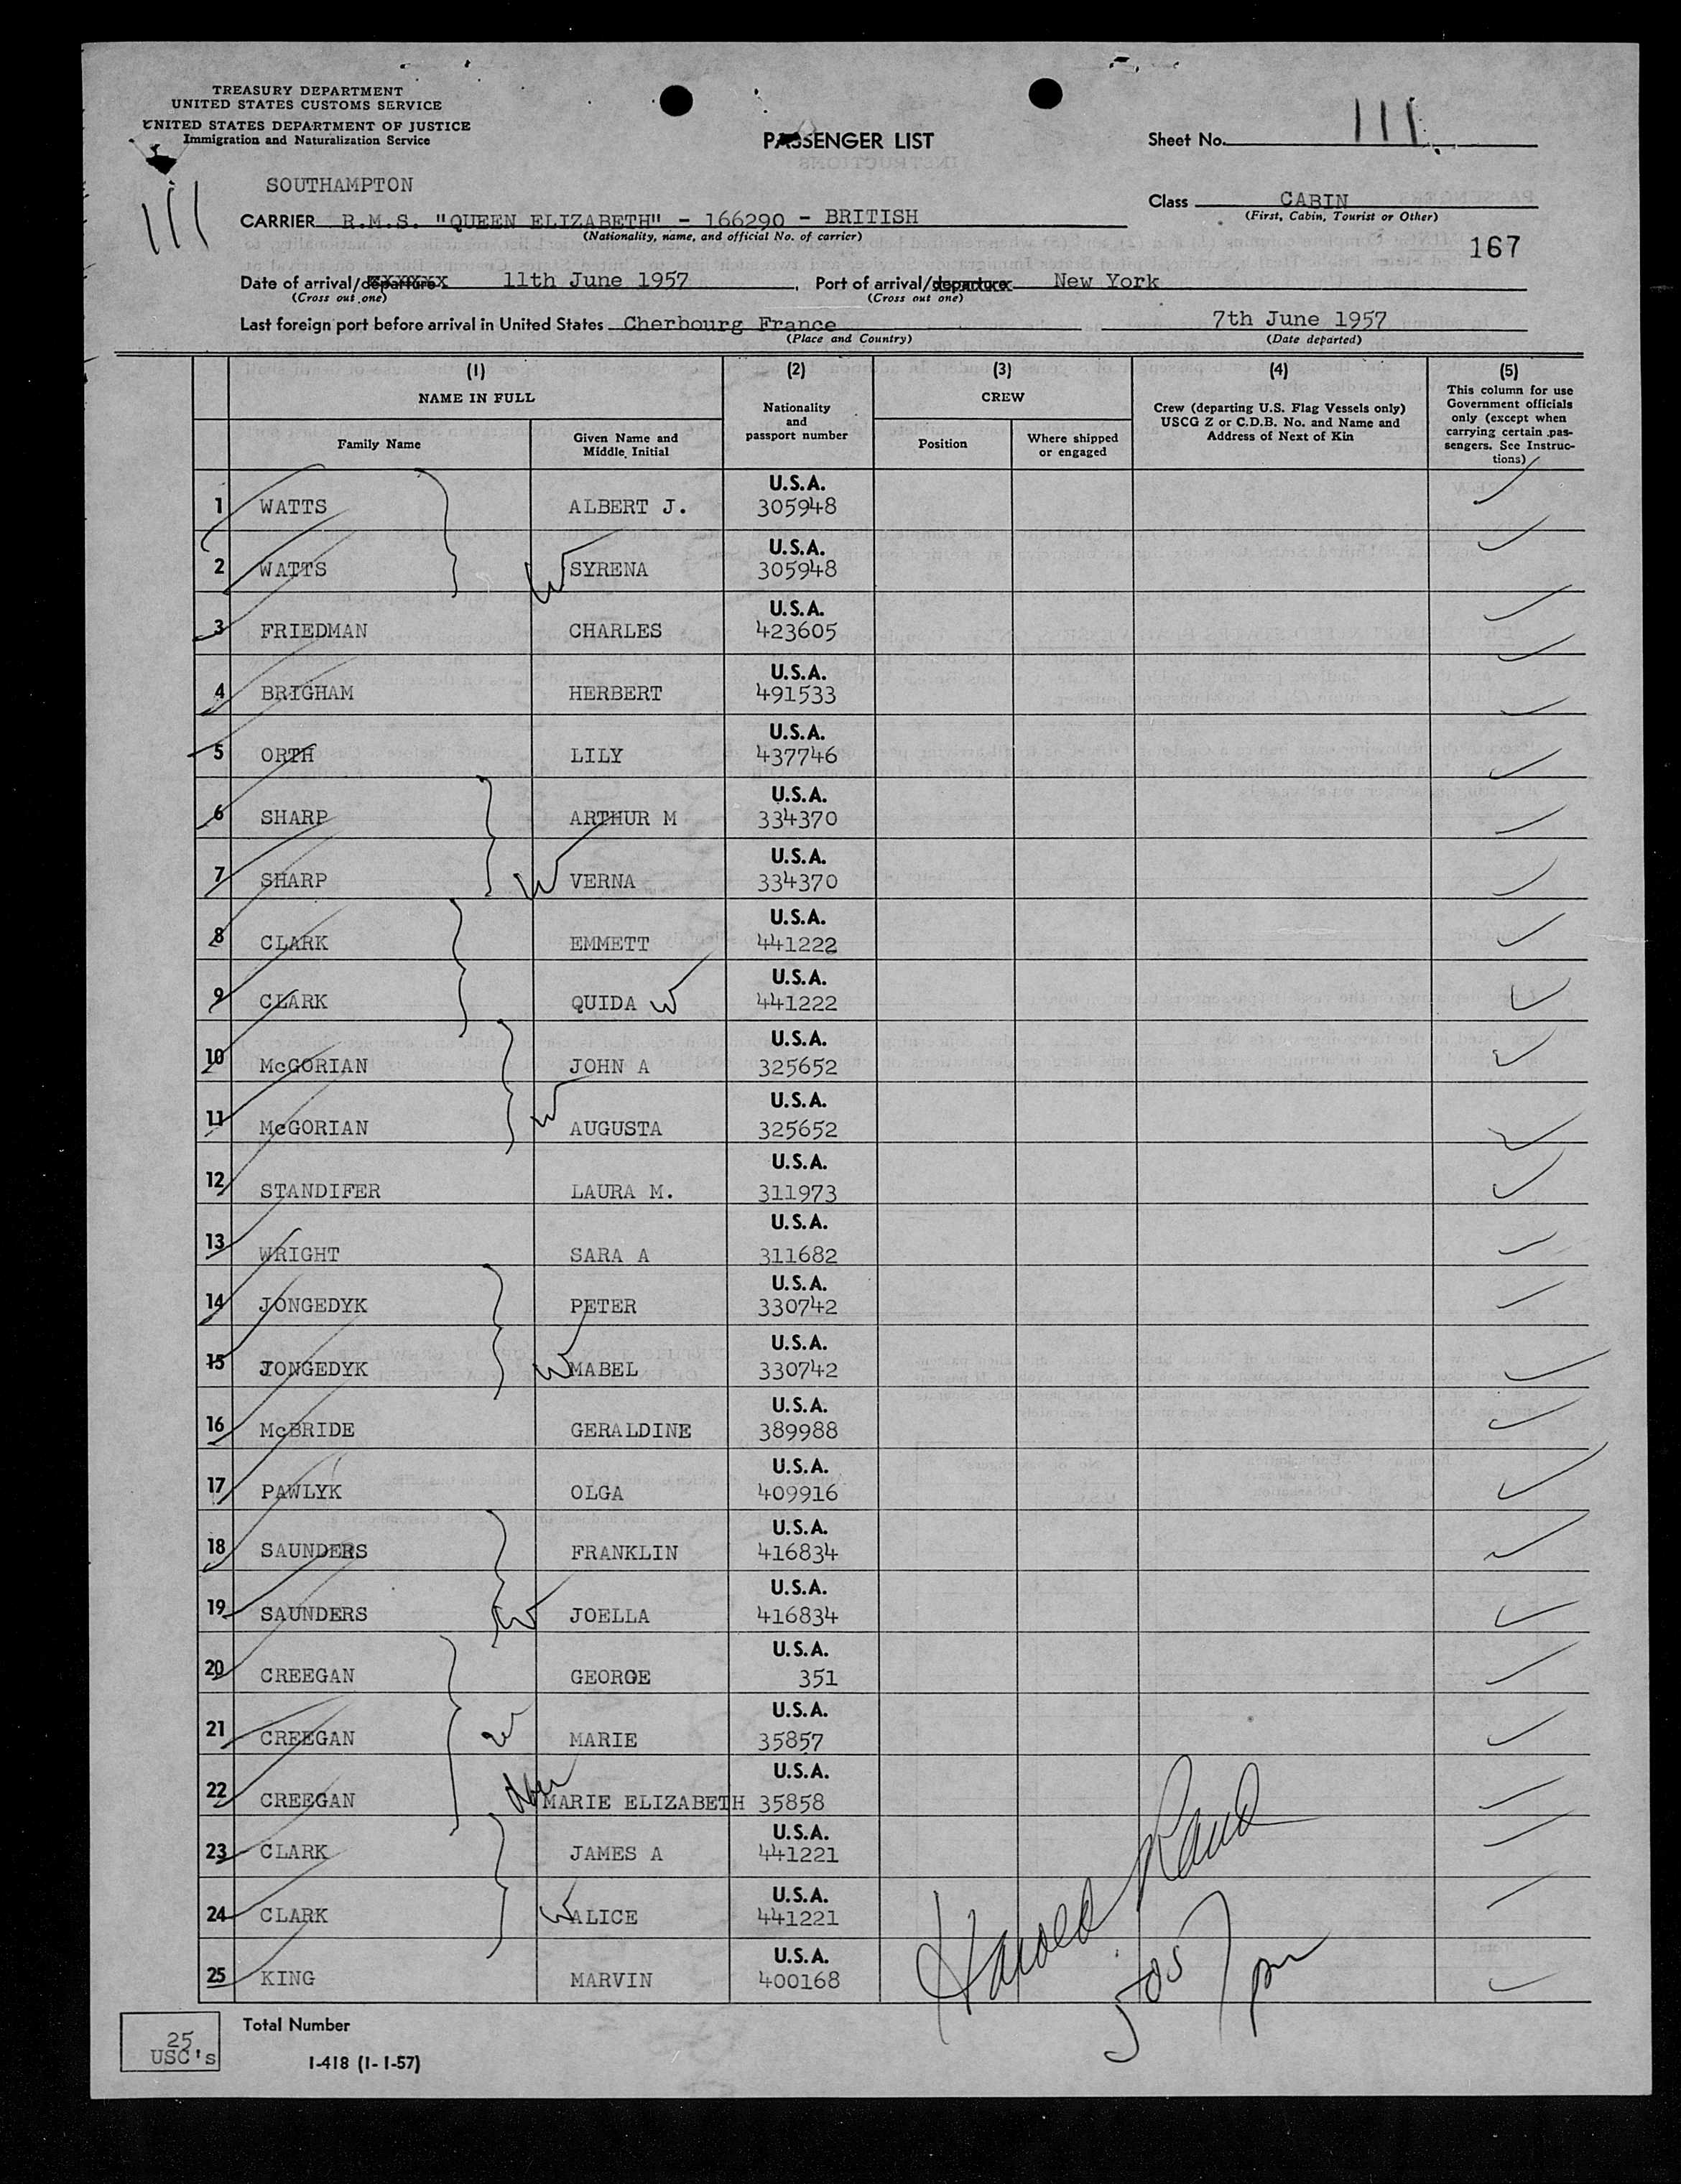 TREASURY DEPARTMENT
UNITED STATES CUSTOMS SERVICE
UNITED STATES DEPARTMENT OF JUSTICE
Immigration and Naturalization Service
PASSENGER LIST
Sheet No. 111
111
SOUTHAMPTON
Class CABIN
(First, Cabin, Tourist or Other)
CARRIER R.M.S. "QUEEN ELIZABETH" - 166290 - BRITISH
(Nationality, name, and official No. of carrier)
167
Date of arrival/departure 11th June 1957, Port of arrival/departure New York
(Cross out one) (Cross out one)
Last foreign port before arrival in United States Cherbourg France 7th June 1957
(Place and Country) (Date departed)
(1) (2) (3) (4) (5)
NAME IN FULL
Family Name
Given Name and
Middle Initial
Nationality
and
passport number
CREW
Position
Where shipped
or engaged
Crew (departing U.S. Flag Vessels only)
USCG Z or C.D.B. No. and Name and
Address of Next of Kin
This column for use
Government officials
only (except when
carrying certain pas-
sengers. See Instruc-
tions)
1 WATTS ALBERT J. U.S.A. 305948
2 WATTS W SYRENA U.S.A. 305948
3 FRIEDMAN CHARLES U.S.A. 423605
4 BRIGHAM HERBERT U.S.A. 491533
5 ORTH LILY U.S.A. 437746
6 SHARP ARTHUR M U.S.A. 334370
7 SHARP W VERNA U.S.A. 334370
8 CLARK EMMETT U.S.A. 441222
9 CLARK QUIDA W U.S.A. 441222
10 McGORIAN JOHN A U.S.A. 325652
11 McGORIAN W AUGUSTA U.S.A. 325652
12 STANDIFER LAURA M. U.S.A. 311973
13 WRIGHT SARA A U.S.A. 311682
14 JONGEDYK PETER U.S.A. 330742
15 JONGEDYK W MABEL U.S.A. 330742
16 McBRIDE GERALDINE U.S.A. 389988
17 PAWLYK OLGA U.S.A. 409916
18 SAUNDERS FRANKLIN U.S.A. 416834
19 SAUNDERS W JOELLA U.S.A. 416834
20 CREEGAN GEORGE U.S.A. 351
21 CREEGAN W MARIE U.S.A. 35857
22 CREEGAN MARIE ELIZABETH U.S.A. 35858
23 CLARK JAMES A U.S.A. 441221
24 CLARK W ALICE U.S.A. 441221
25 KING MARVIN U.S.A. 400168
Harold Rand
505 7 pm
25
USC's
Total Number
I-418 (1-1-57)